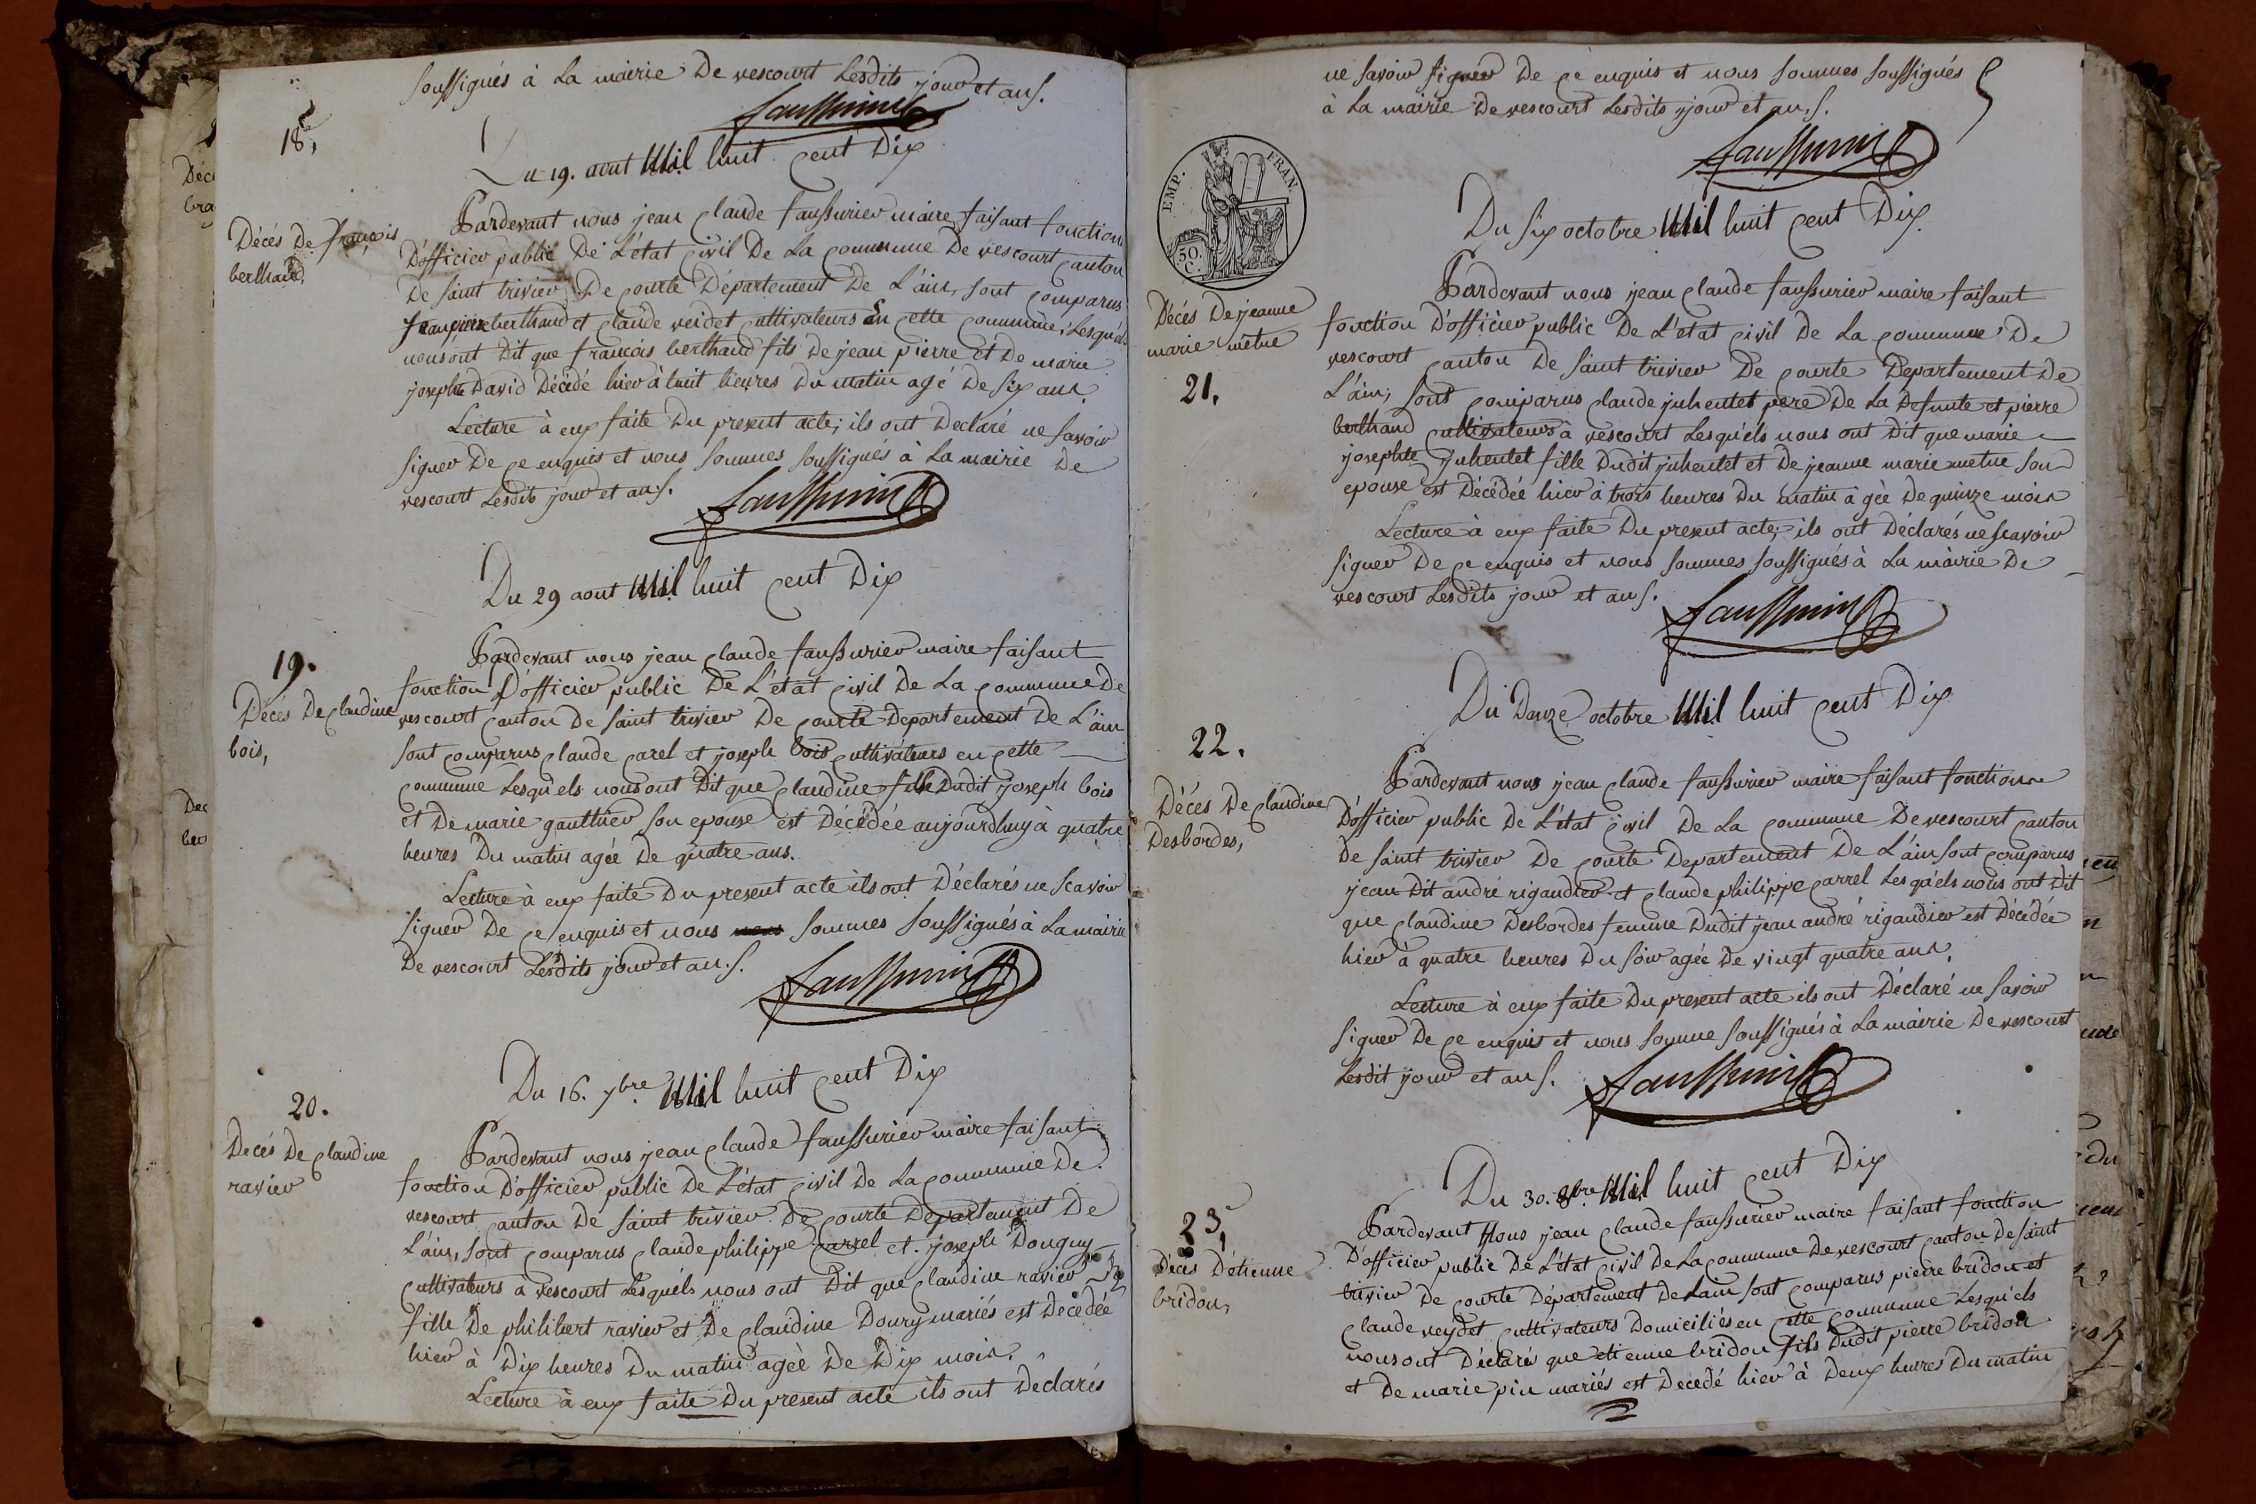 soussignés à La mairie De vescourt Lesdits jour et an f.
faussurier
18,
Du 19. aout Mil huit cent Dix
Décés De françois
berthaud,
Pardevant nous jean claude faussurier maire faisant fonction
D'officier public De L'état civil De La commune De vescourt canton
De saint trivier De courte Département De L'ain, sont comparus
jean pierre berthaud et claude veidet cultivateurs En cette commune, Lesquels
nous ont Dit que francois berthaud fils De jean pierre et De marie
josephte David Décédé hier à huit heures Du matin agé De six ans.
Lecture à eux faite Du present acte; ils ont Declaré ne savoir
signer De ce enquis et nous sommes soussignés à La mairie De
vescourt Lesdits jour et an f.
faussurier
Du 29 aout Mil huit cent Dix
19.
Décés De claudine
bois,
Pardevant nous jean claude faussurier maire faisant
fonction D'officier public De L'état civil De La commune De
vescourt canton De saint trivier De courte Departement De L'ain
sont comparus claude carel et joseph bois cultivateurs en cette
commune Lesquels nous ont Dit que claudine fille Dudit joseph bois
et De marie gauthier son epouse est Décédée aujourdhuy à quatre
heures Du matin agée De quatre ans.
Lecture à eux faite Du present acte ils ont Déclarés ne scavoir
signer De ce enquis et nous nous sommes soussignés à La mairie
De vescourt Lesdits jour et an f.
faussurier
Du 16. 7bre Mil huit cent Dix
20.
Decés De claudine
ravier
Pardevant nous jean claude faussurier maire faisant
fonction D'officier public De L'état civil De La commune De
vescourt canton De saint trivier De courte Departement De
L'ain, sont comparus claude philippe carrel et joseph Douguy
cultivateurs a vescourt Lesquels nous ont Dit que claudine ravier
fille De philibert ravier et De claudine Doury mariés est Decédée
hier à Dix heures Du matin agée De Dix mois.
Lecture à eux faite Du present acte ils ont Declarés
ne savoir signer De ce enquis et nous sommes soussignés
à La mairie De vescourt Lesdits jour et an f.
5
faussurier
EMP. FRAN.
50.
C.
Du six octobre Mil huit cent Dix.
Décés De jeanne
marie metue
21.
Pardevant nous jean claude faussurier maire faisant
fonction D'officier public De L'etat civil De La commune De
vescourt canton De saint trivier De courte Departement De
L'ain, sont comparus claude juhentet pere De La Defunte et pierre
berthaud cultivateurs à vescourt Lesquels nous ont Dit que marie
josephte juhentet fille Dudit juhentet et De jeanne marie metue son
epouse est Décédée hier à trois heures Du matin à gée De quinze mois
Lecture à eux faite Du present acte, ils ont Déclarés ne scavoir
signer De ce enquis et nous sommes soussignés à La mairie De
vescourt Lesdits jour et an f.
faussurier
Du Douze octobre Mil huit cent Dix
22.
Décés De claudine
Desbordes,
Pardevant nous jean claude faussurier maire faisant fonction
D'officier public De L'état civil De La commune De vescourt canton
De saint trivier De courte Departement De L'ain sont comparus
jean Dit andré rigaudier et claude philippe carrel Lesquels nous ont Dit
que claudine Desbordes femme Dudit jean andré rigaudier est Décédée
hier à quatre heures Du soir agée De vingt quatre ans.
Lecture à eux faite Du present acte ils ont Déclaré ne savoir
signer De ce enquis et nous somme soussignés à La mairie De vescourt
Lesdit jour et an f.
faussurier
Du 30. 8bre Mil huit cent Dix
23,
Décés D'étienne
bridon,
Pardevant Nous jean claude faussurier maire faisant fonction
D'officier public De L'état civil De La commune De vescourt canton De saint
trivier De courte Département De L'ain sont comparus pierre bridon et
claude veydet cultivateurs Domiciliés en cette commune Lesquels
nous ont Déclarés que etienne bridon fils Dudit pierre bridon
et De marie pin mariés est Decedé hier à Deux heures Du matin